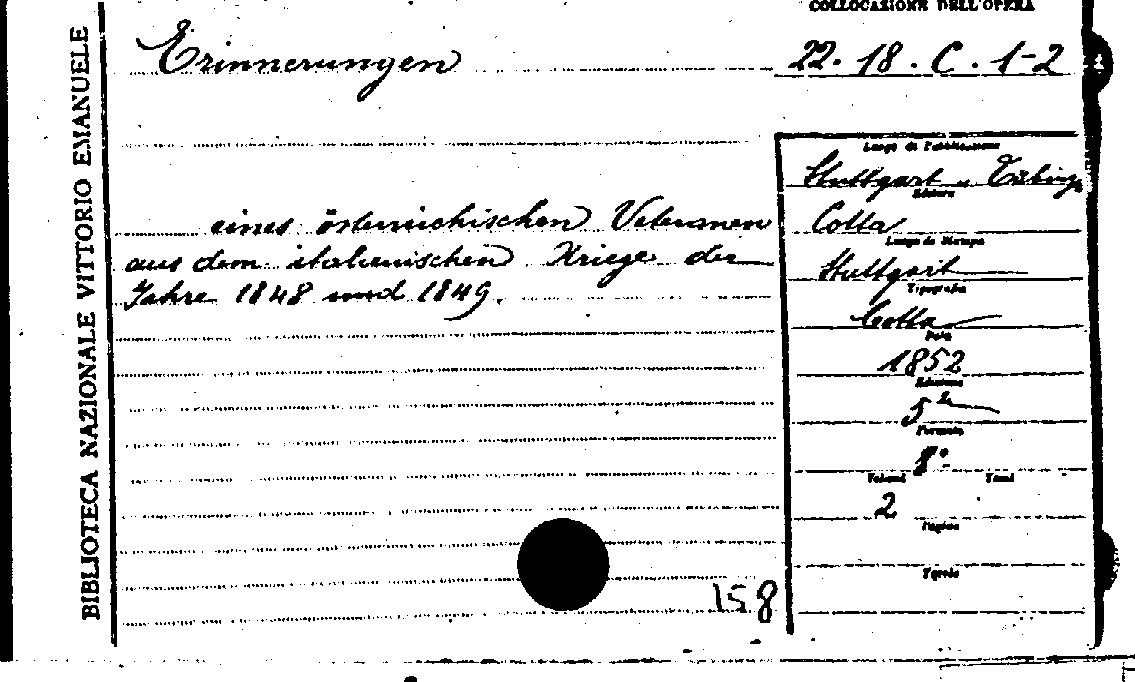 COLLOCAZIONE DELL'OPERA
Erinnerungen
22. 18. C. 1-2
BIBLIOTECA NAZIONALE VITTORIO EMANUELE
eines österreichischen Veteranen
aus dem italienischen Kriege der
Jahre 1848 und 1849.
Luogo di Pubblicazione
Stuttgart u. Tübing.
Editore
Cotta
Luogo di Stampa
Stuttgart
Tipografia
Cotta
Data
1852
Edizione
5ª
Formato
8°
Volumi Tomi
2
Pagine
Tavole
158